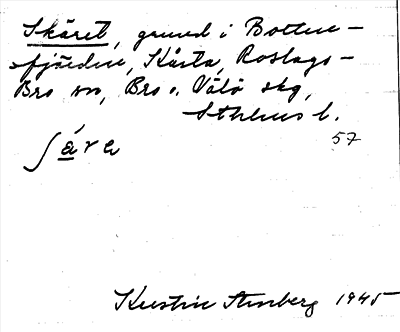 Skäret, grund i Botten-
fjärden, Kårsta, Roslags-
Bro sn, Bro o. Vätö skg,
Sthlms l.
57
ʃà̱re
Kerstin Stenberg 1945